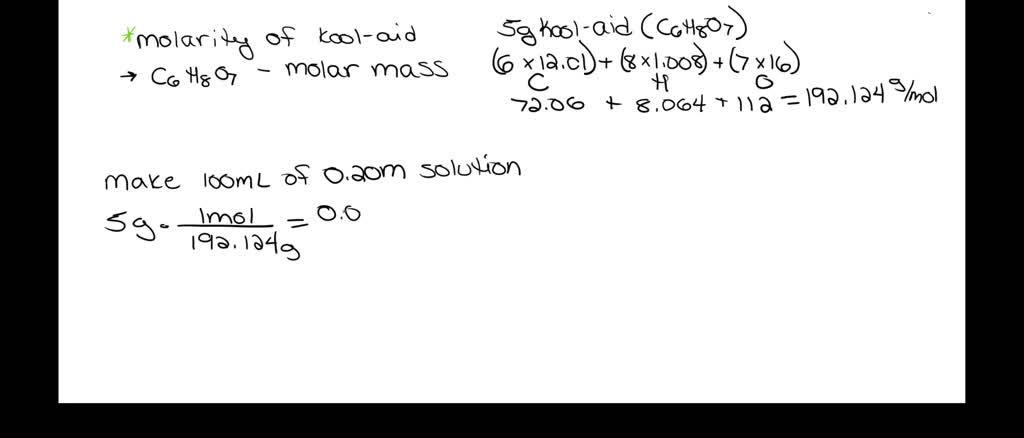 *molarity of kool-aid
→ C6H8O7 - molar mass
5g kool-aid (C6H8O7)
(6 x 12.01) + (8 x 1.008) + (7 x 16)
C H O
72.06 + 8.064 + 112 = 192.124 g/mol
make 100mL of 0.20m solution
5g · 1mol / 192.124g = 0.0